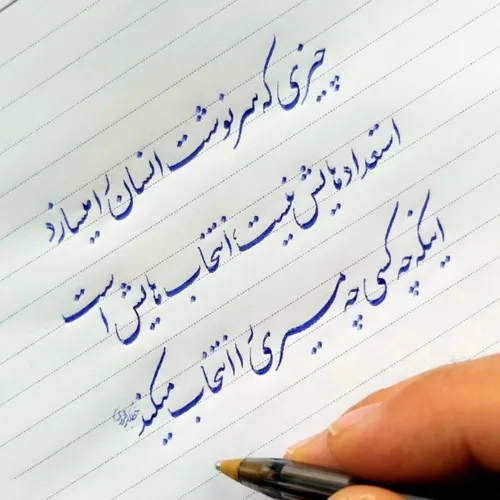 چیزی که سرنوشت انسان را میسازد
استعدادهایش نیست، انتخاب هایش است
اینکه چه کسی چه مسیری را انتخاب میکند